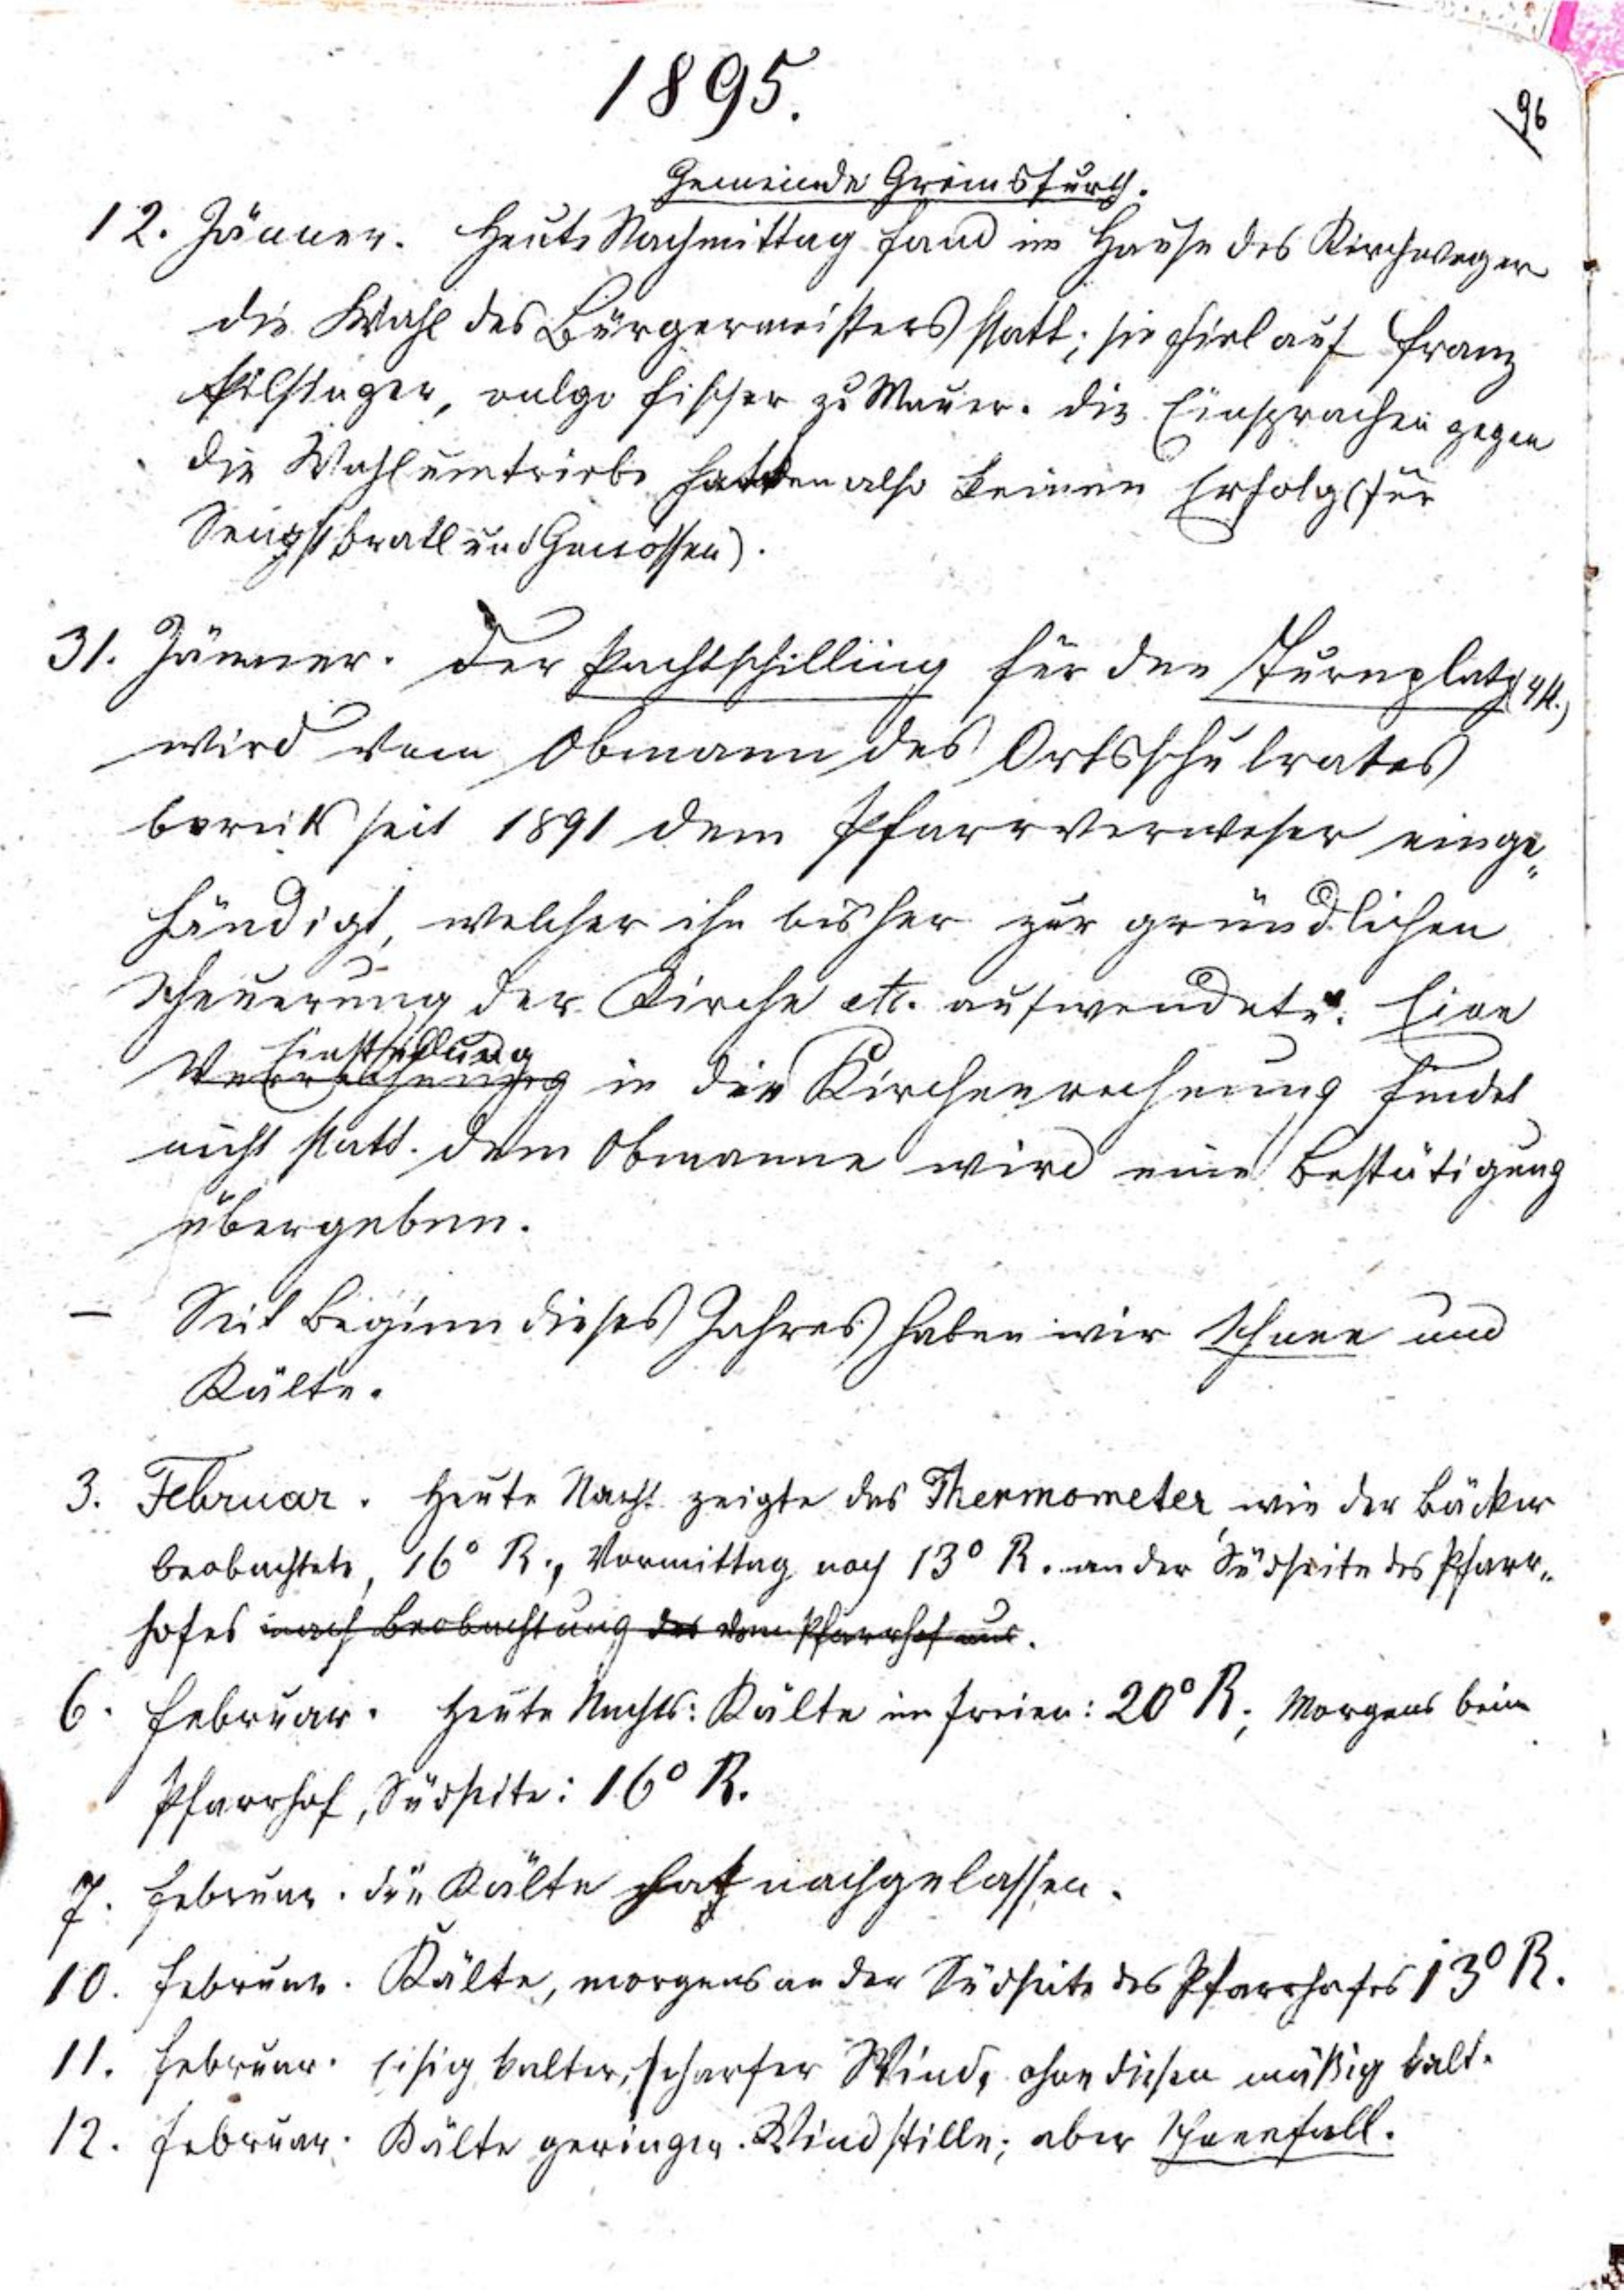 1895.
96
Gemeinde Greimsfurth.
12. Jänner. Heute Nachmittag fand im Hause des Kirchweger
die Wahl des Bürgermeisters statt; sie fiel auf Franz
vulgo Fischer zu Mauer. Die Einsprachen gegen
die Wahlumtriebe hatten also keinen Erfolg (für
und Genossen).
31. Jänner. Der Pachtschilling für den Turnplatz
wird vom Obmann des Ortsschulrates
bereits seit 1891 dem Pfarrverweser einge„
händigt, welcher ihn bisher zur gründlichen
Scheuerung der Kirche etc. aufwendete. Eine
Einstellung
Verrechnung in die Kirchenrechnung findet
nicht statt. Dem Obmanne wird eine Bestätigung
übergeben.
— Seit Beginn dieses Jahres haben wir Schnee und
Kälte.
3. Februar. Heute Nacht zeigte das Thermometer wie der Bäcker
beobachtete, 16° R., Vormittag noch 13° R. an der Südseite des Pfarr„
hofes nach Beobachtung des vom Pfarrhof aus.
6. Februar. Heute Nachts: Kälte im Freien: 20° R.; Morgens beim
Pfarrhof, Südseite: 16° R.
7. Februar. Die Kälte hat nachgelassen.
10. Februar. Kälte, morgens an der Südseite des Pfarrhofes 13° R.
11. Februar. Eisig kalter, scharfer Wind, ohne diesen mäßig kalt.
12. Februar. Kälte geringer. Windstille; aber Schneefall.